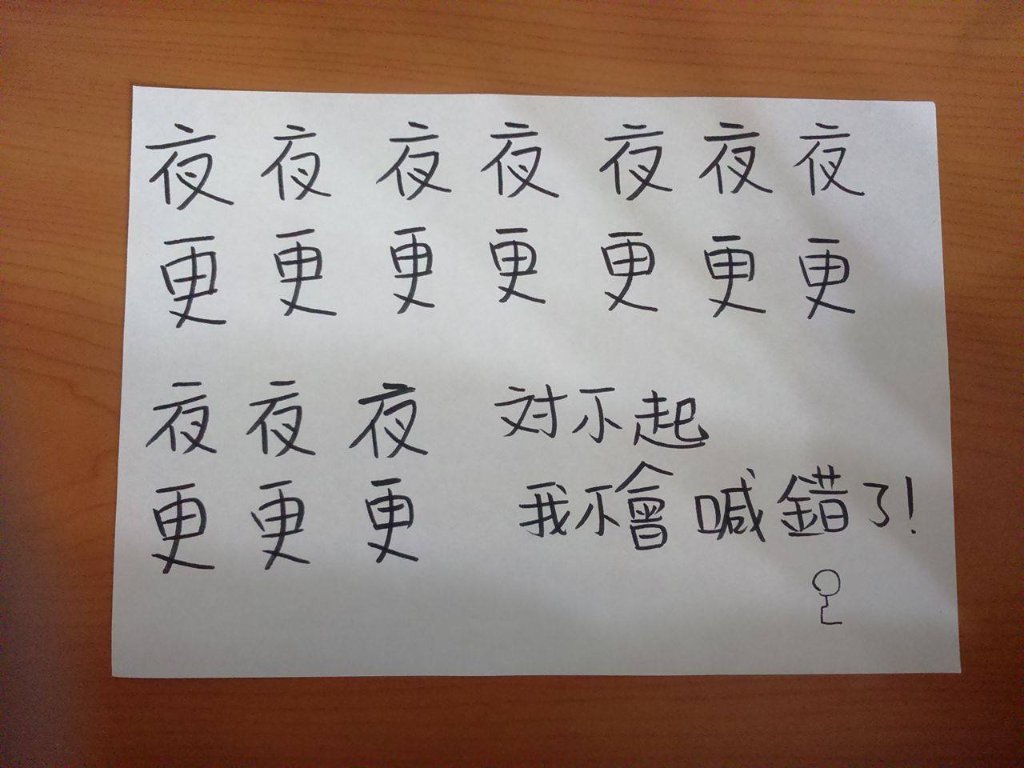 夜夜夜夜夜夜夜
更更更更更更更
夜夜夜 对不起
更更更 我不會喊錯了!